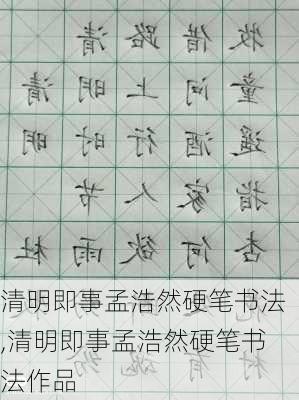 清明 杜
清明时节雨纷
路上行人欲魂
借问酒家何有
牧童遥指杏村
清明即事孟浩然硬笔书法
,清明即事孟浩然硬笔书
法作品